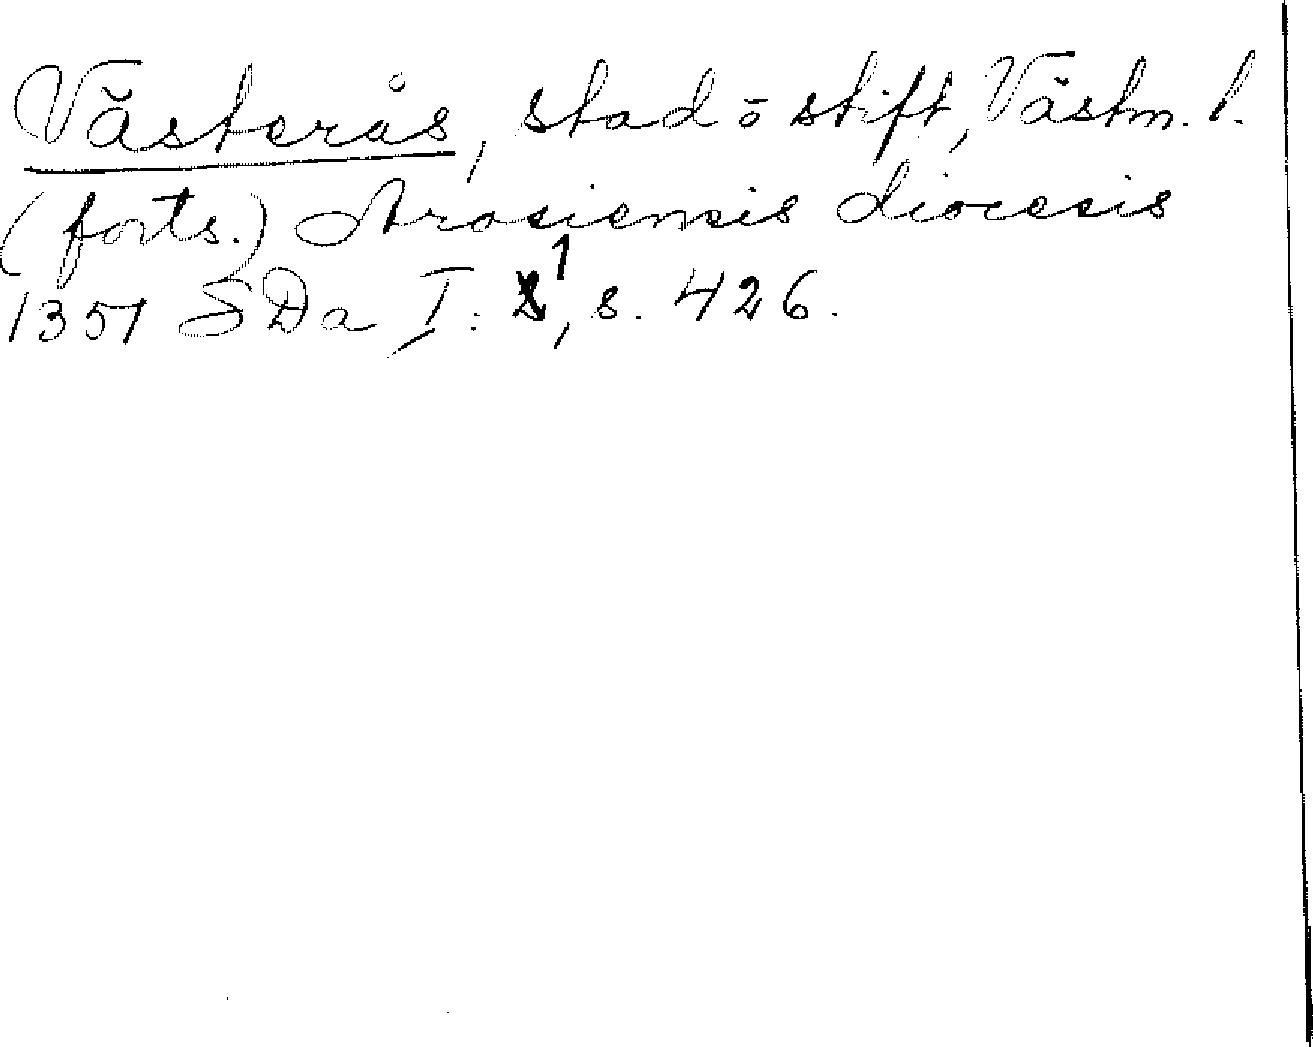 Västerås, stad o stift, Västm. l.
(forts.) Arosiensis diocesis
1351 SDa I: 1, s. 426.